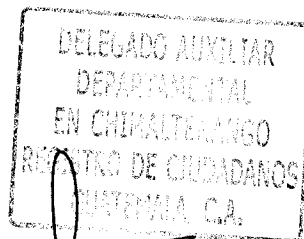 DELEGADO AUXILIAR
DEPARTAMENTAL
EN CHIMALTENANGO
REGISTRO DE CIUDADANOS
GUATEMALA C.A.